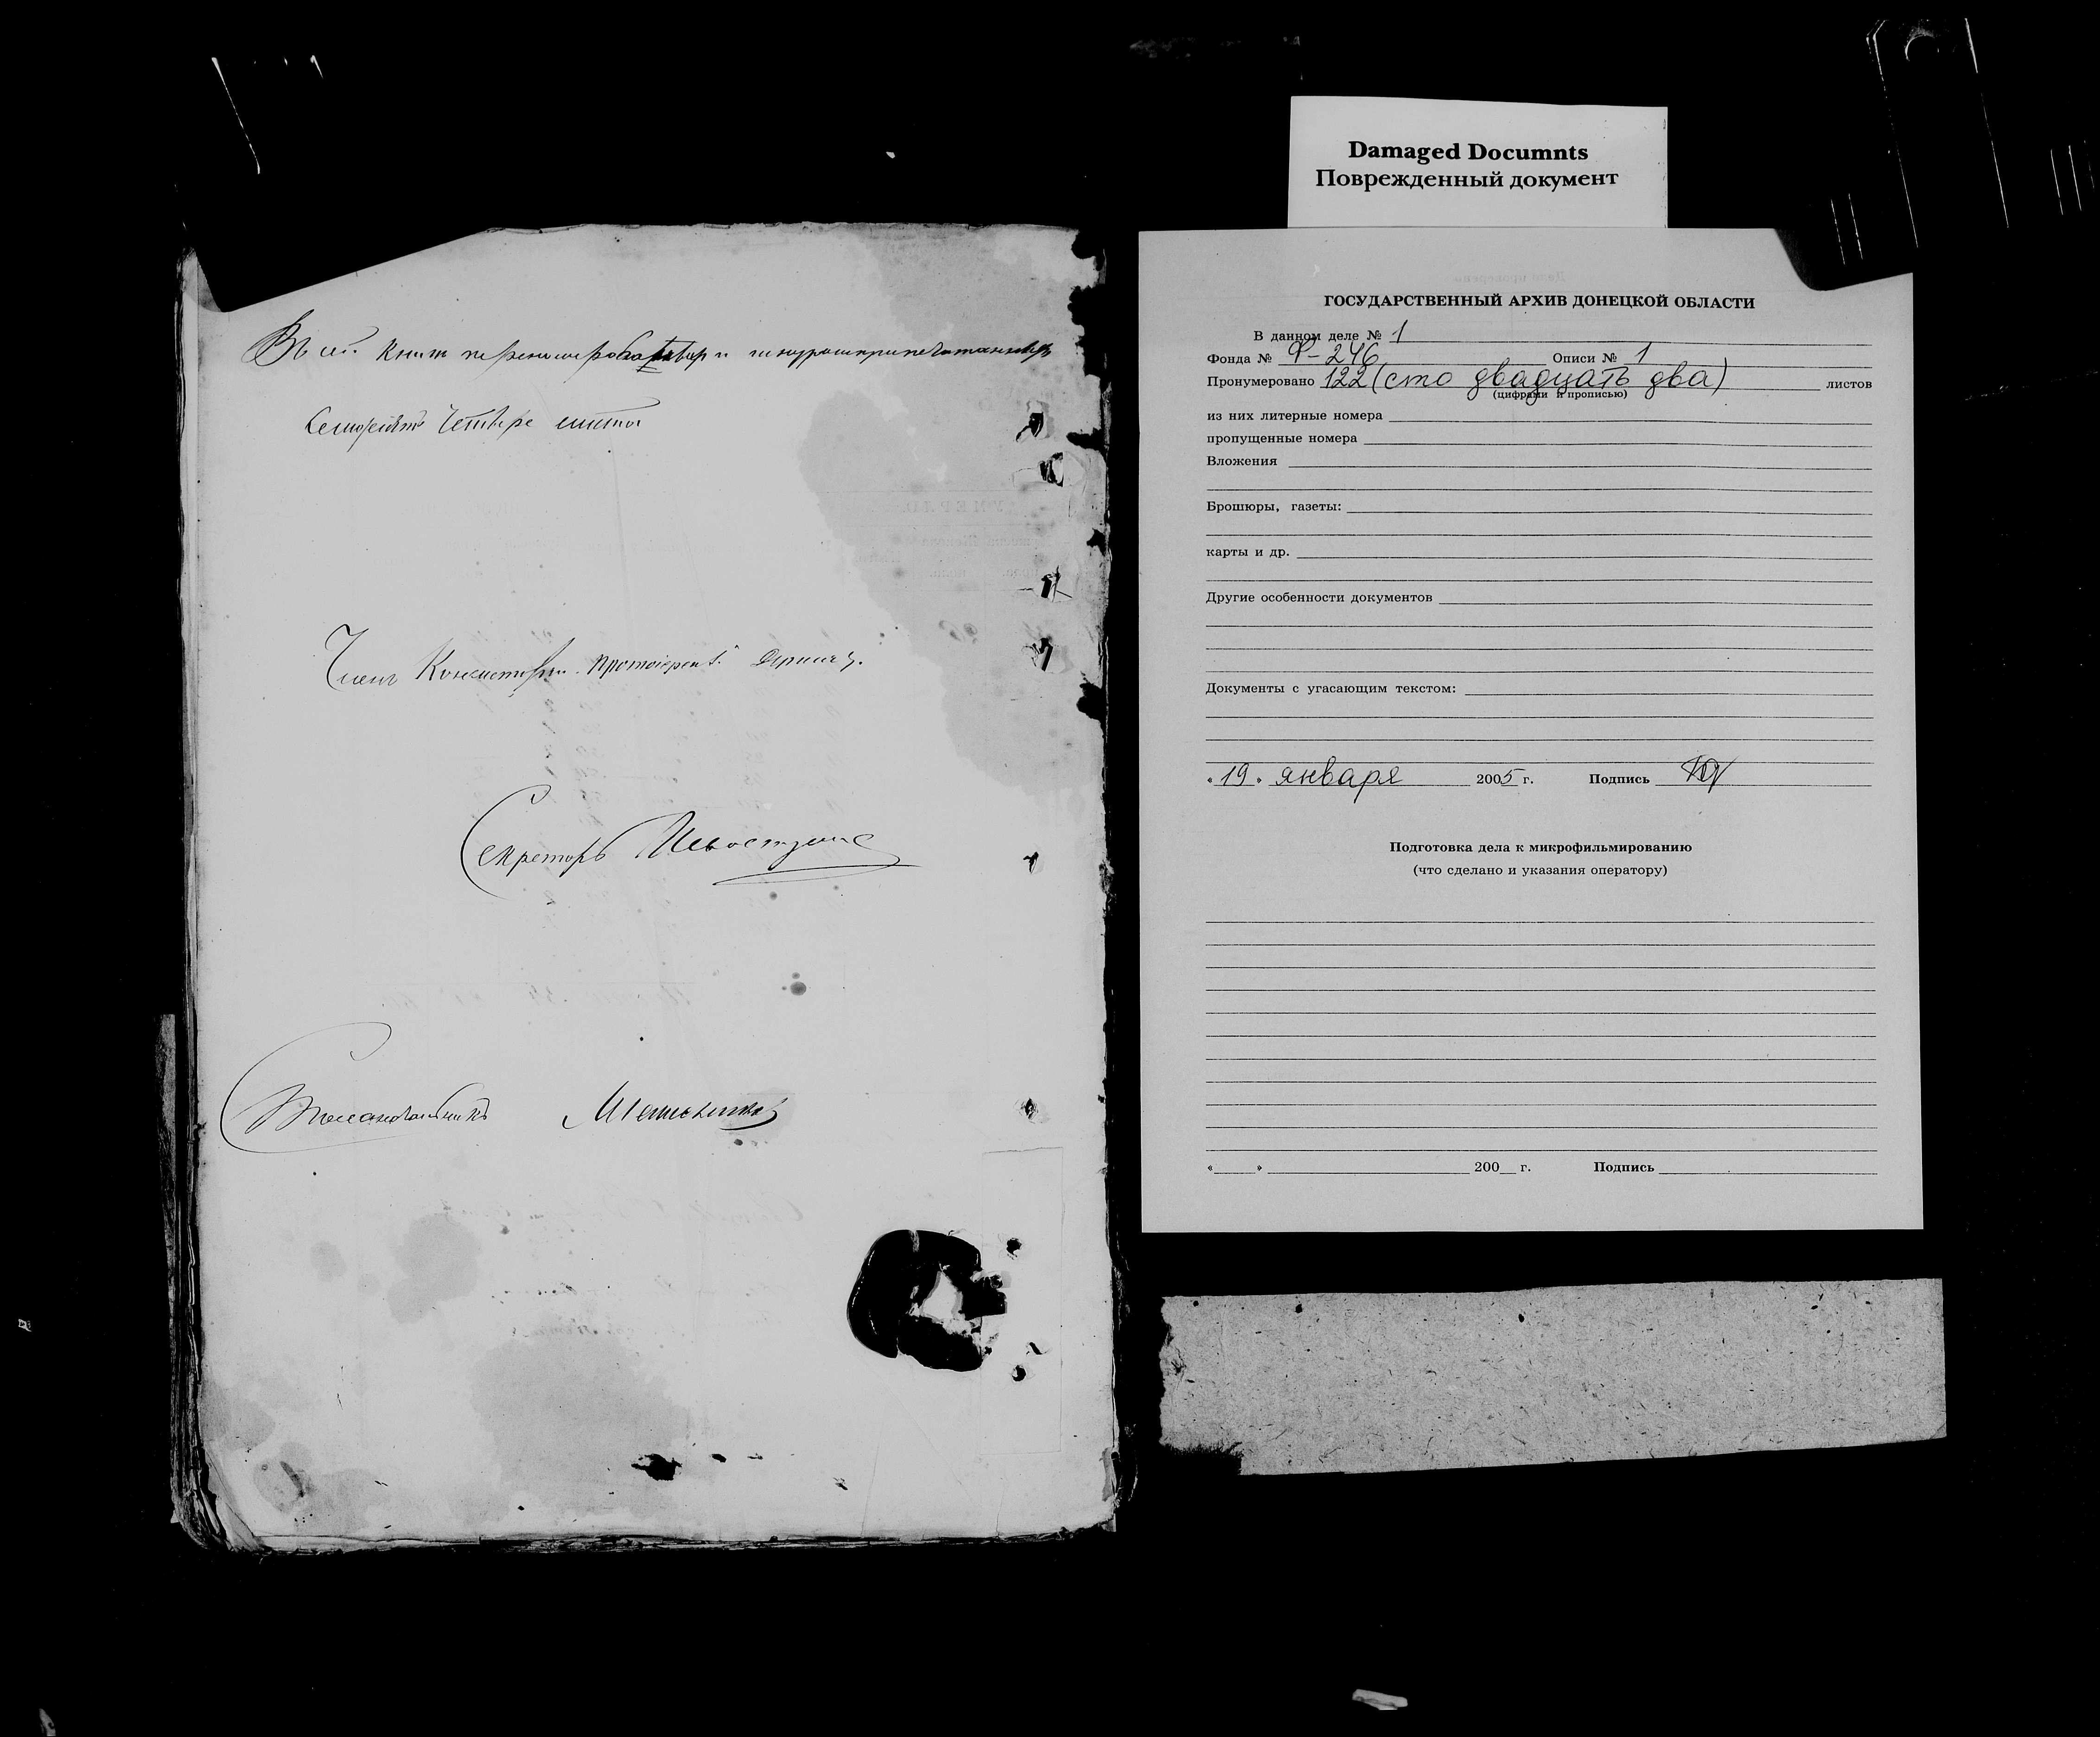 Въ сей книге перенумерованныхъ и шнуроприпечатанныхъ
Семьдесятъ четыре листа
Членъ Консисторіи Протоіерей
Секретарь
Столоначальникъ
Damaged Documnts
Поврежденный документ
ГОСУДАРСТВЕННЫЙ АРХИВ ДОНЕЦКОЙ ОБЛАСТИ
В данном деле № 1
Фонда № Ф-246 Описи № 1
Пронумеровано 122 (сто двадцать два) листов
(цифрами и прописью)
из них литерные номера
пропущенные номера
Вложения
Брошюры, газеты:
карты и др.
Другие особенности документов
Документы с угасающим текстом:
«19» января 2005 г. Подпись
Подготовка дела к микрофильмированию
(что сделано и указания оператору)
« » 200 г. Подпись